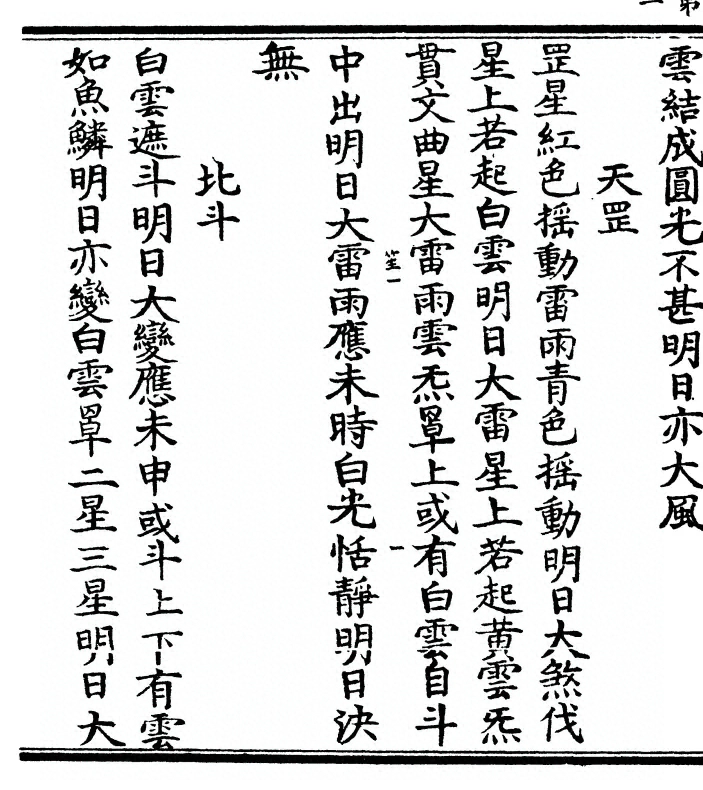 雲結成圓光不甚明日亦大風
天罡
罡星紅色揺動雷雨青色揺動明日大煞伐
星上若起白雲明日大雷星上若起黄雲炁
貫文曲星大雷雨雲炁罩上或有白雲自斗
中出明日大雷雨應未時白光恬靜明日決
無
北斗
白雲遮斗明日大變應未申或斗上下有雲
如魚鱗明日亦變白雲罩二星三星明日大